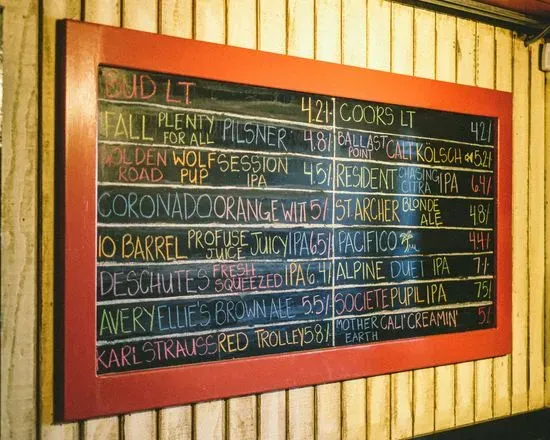 BUD LT 4.2%
FALL PLENTY FOR ALL PILSNER 4.8%
GOLDEN ROAD WOLF PUP SESSION IPA 4.5%
CORONADO ORANGE WIT 5%
10 BARREL PROFUSE JUICE JUICY IPA 6.5%
DESCHUTES FRESH SQUEEZED IPA 6.4%
AVERY ELLIE'S BROWN ALE 5.5%
KARL STRAUSS RED TROLLEY 5.8%
COORS LT 4.2%
BALLAST POINT CALI KÖLSCH 5.2%
RESIDENT CHASING CITRA IPA 6.4%
ST ARCHER BLONDE ALE 4.8%
PACIFICO 4.4%
ALPINE DUET IPA 7%
SOCIETE PUPIL IPA 7.5%
MOTHER EARTH CALI CREAMIN' 5%